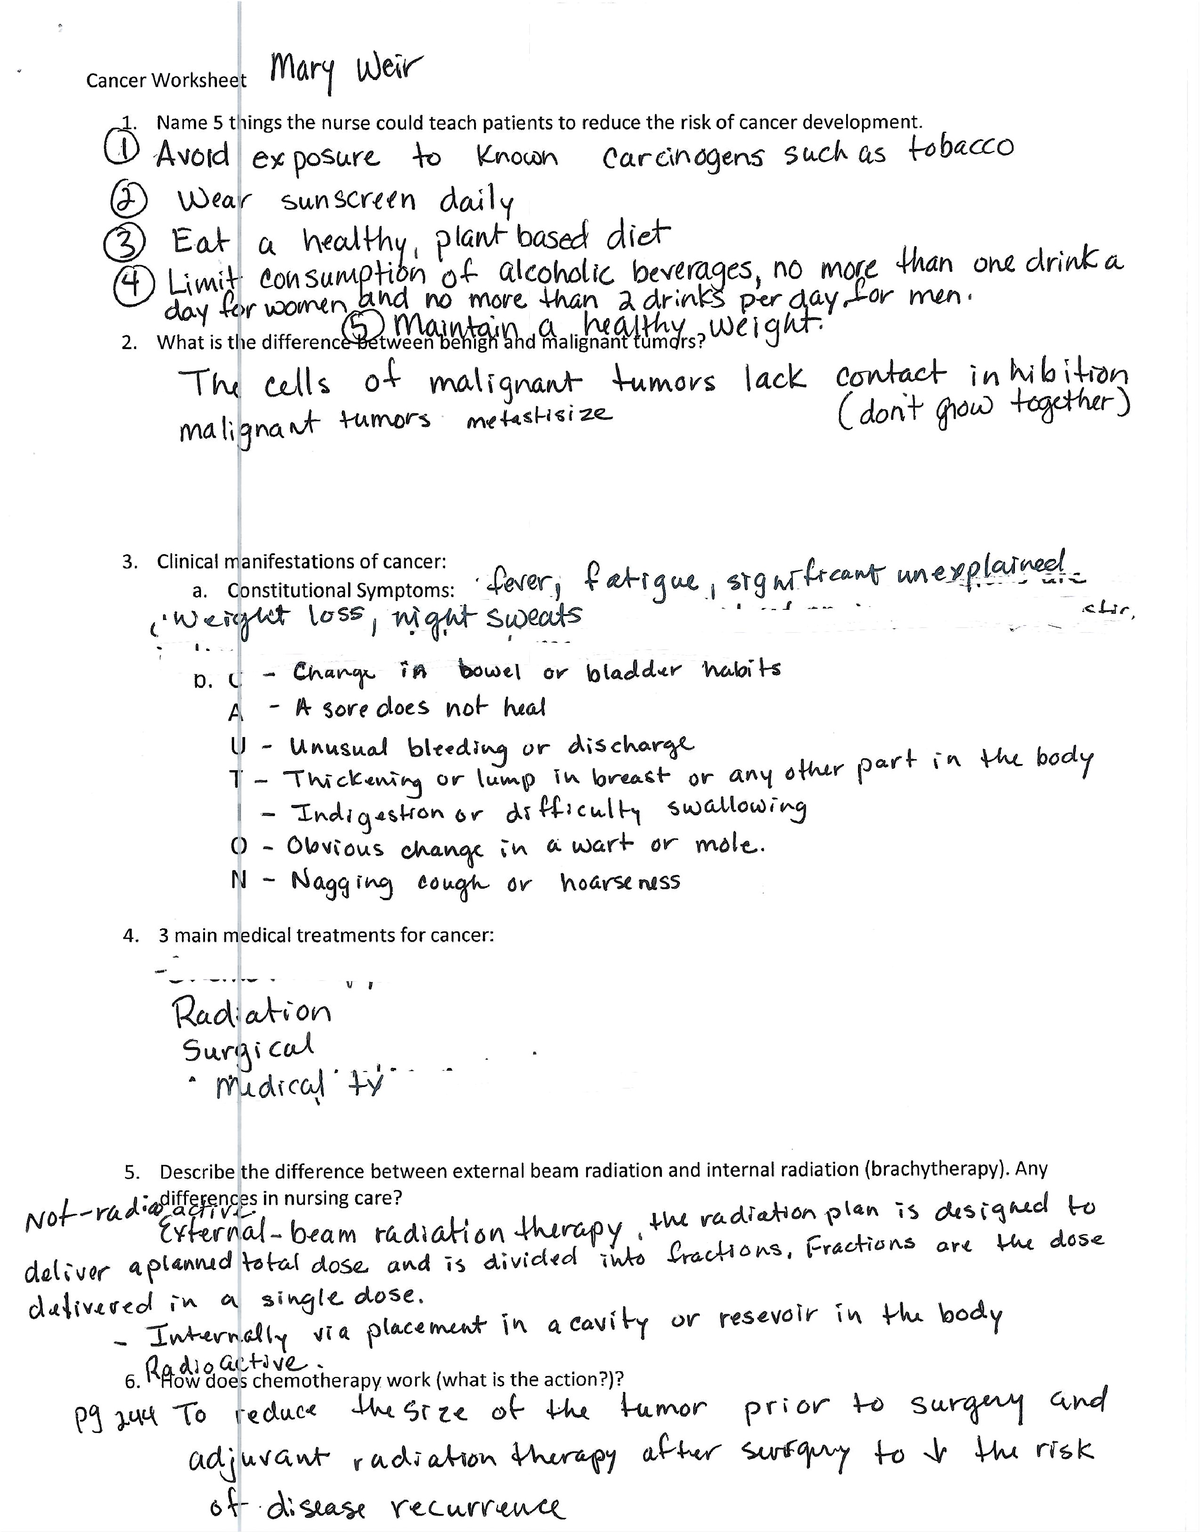 Cancer Worksheet Mary Weir
1. Name 5 things the nurse could teach patients to reduce the risk of cancer development.
① Avoid exposure to Known carcinogens such as tobacco
② Wear sunscreen daily
③ Eat a healthy, plant based diet
④ Limit consumption of alcoholic beverages, no more than one drink a
day for women and no more than 2 drinks per day for men.
⑤ Maintain a healthy weight.
2. What is the difference between benign and malignant tumors?
The cells of malignant tumors lack contact inhibition
(don't grow together)
malignant tumors metastisize
3. Clinical manifestations of cancer:
a. Constitutional Symptoms: fever, fatigue, significant unexplained
weight loss, night sweats
b. C - Change in bowel or bladder habits
A - A sore does not heal
U - Unusual bleeding or discharge
T - Thickening or lump in breast or any other part in the body
I - Indigestion or difficulty swallowing
O - Obvious change in a wart or mole.
N - Nagging cough or hoarseness
4. 3 main medical treatments for cancer:
Radiation
Surgical
Medical
5. Describe the difference between external beam radiation and internal radiation (brachytherapy). Any
differences in nursing care?
Not-radioactive
External-beam radiation therapy, the radiation plan is designed to
deliver a planned total dose and is divided into fractions. Fractions are the dose
delivered in a single dose.
- Internally via placement in a cavity or resevoir in the body
Radioactive.
6. How does chemotherapy work (what is the action?)?
pg 244 To reduce the size of the tumor prior to surgery and
adjuvant radiation therapy after surgery to ↓ the risk
of disease recurrence